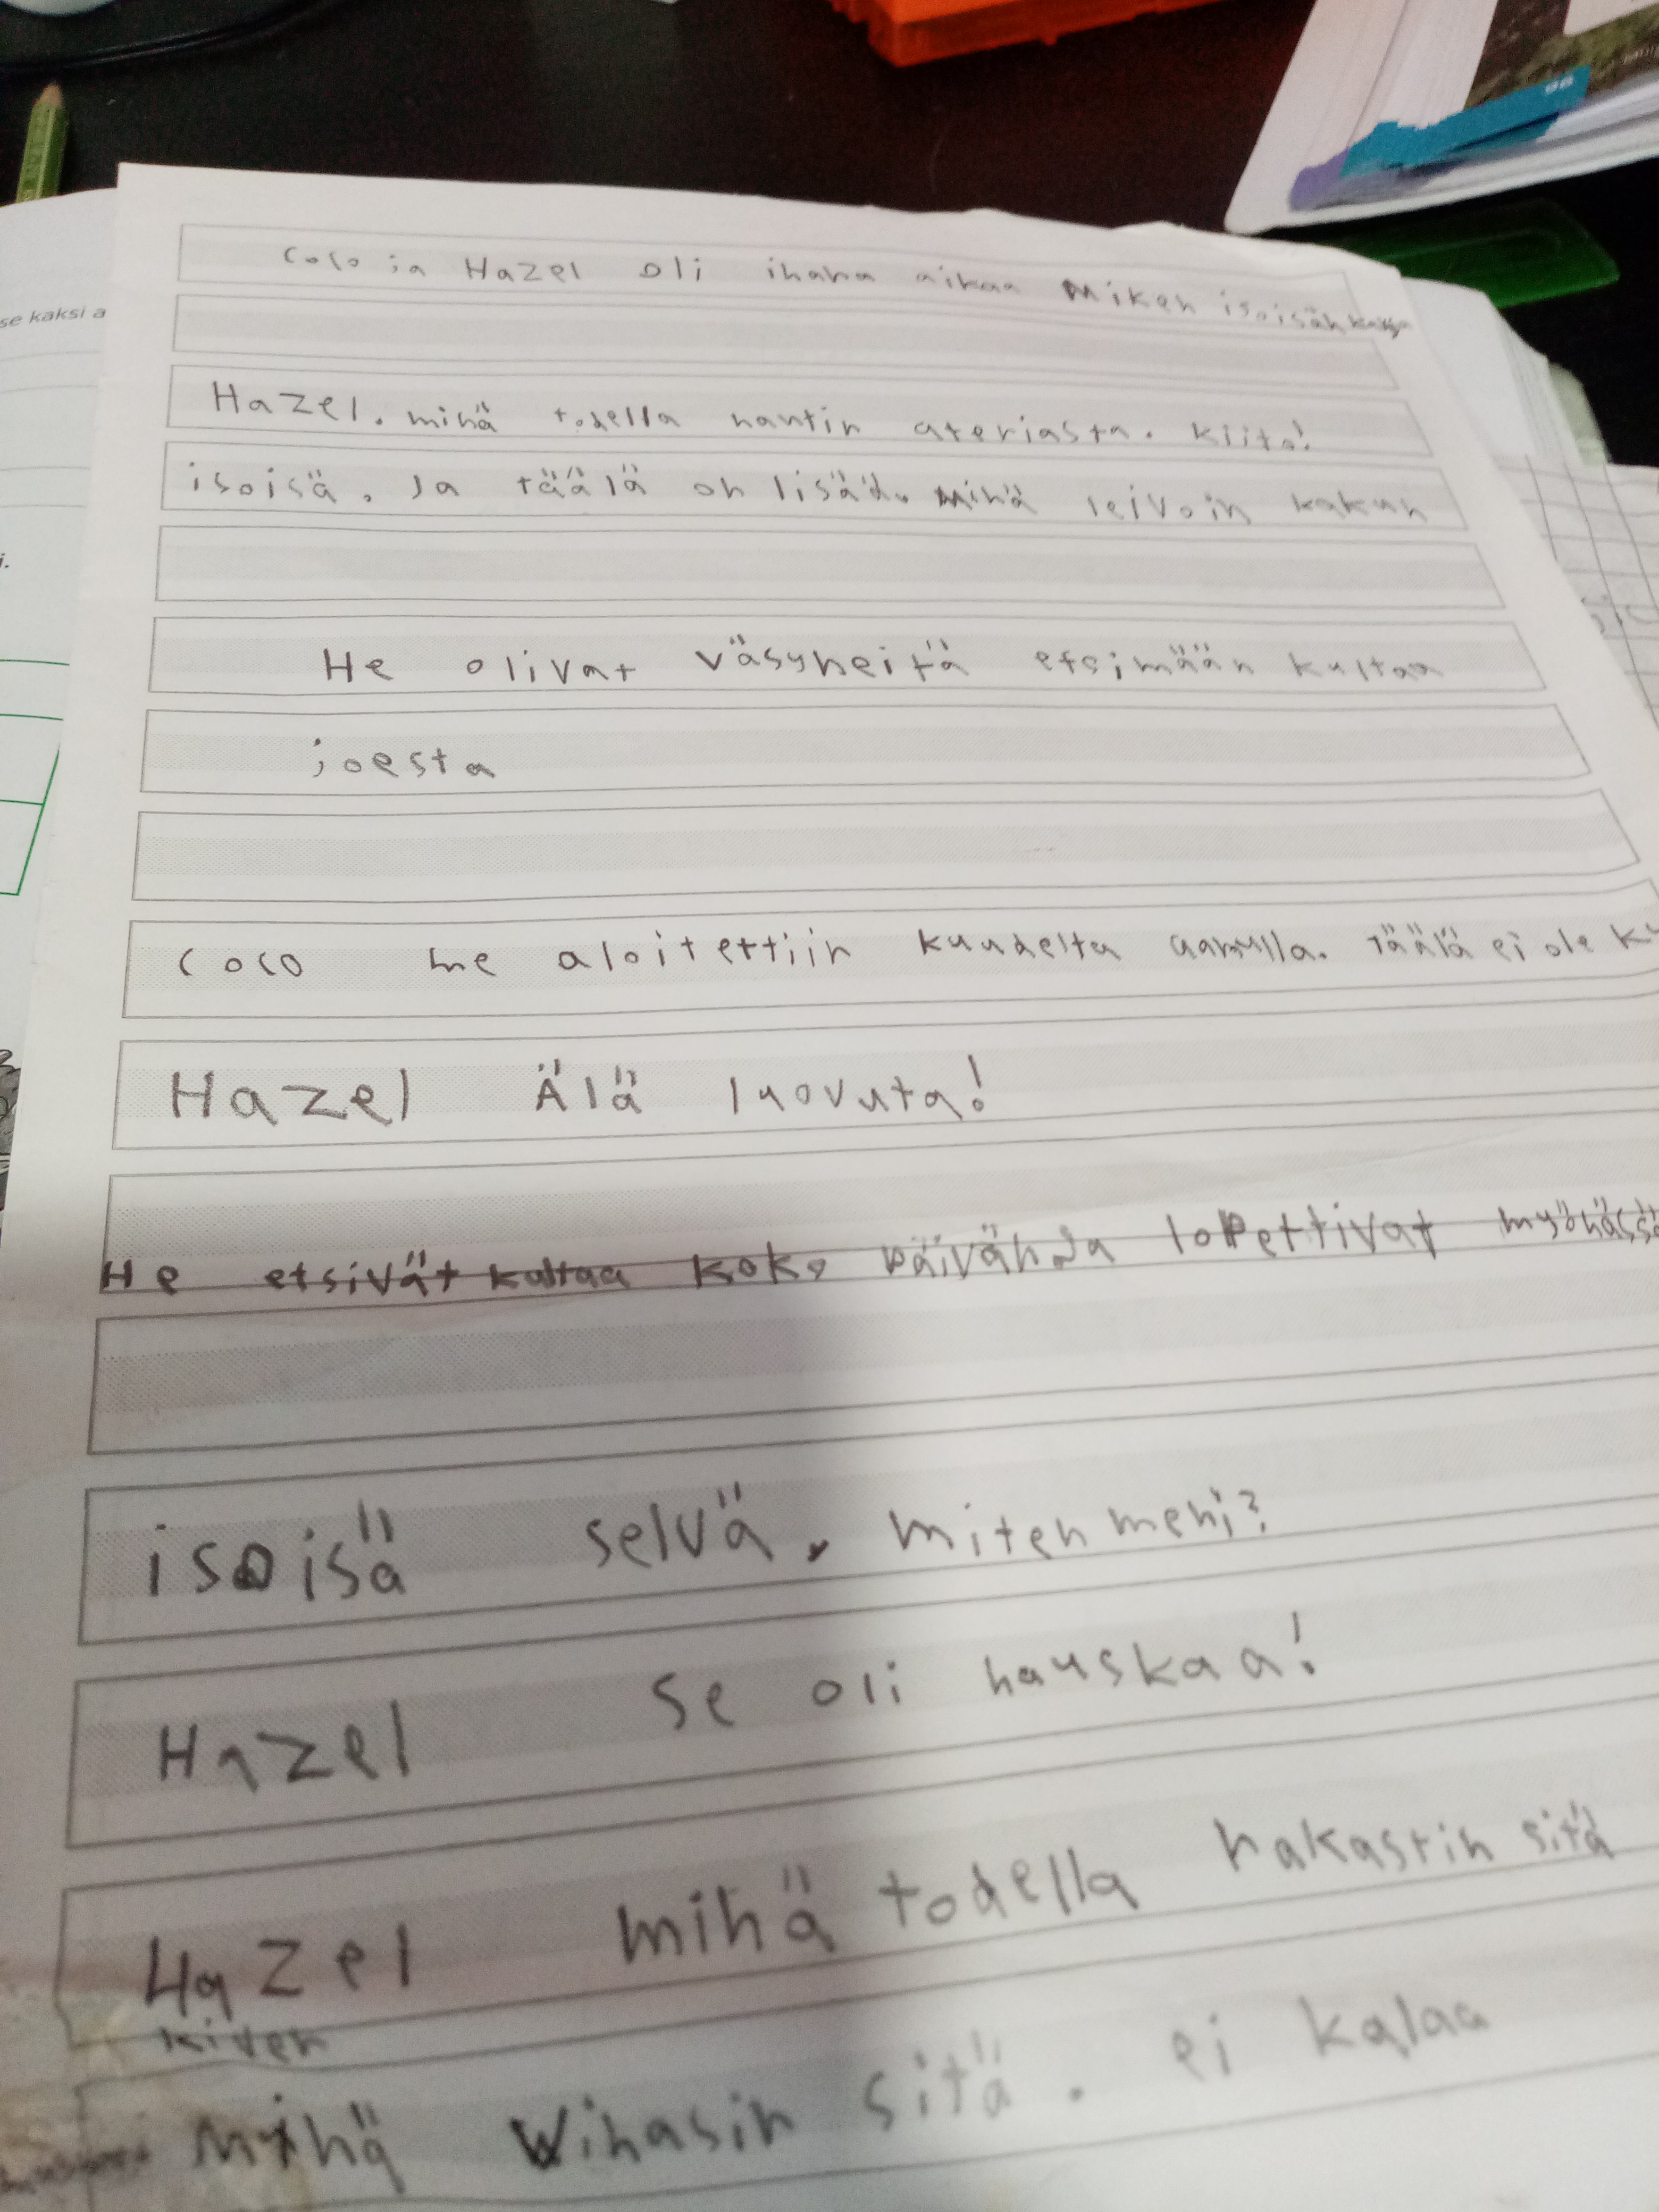 se kaksi a
Coco ja Hazel oli ihana aikaa Miken isoisän kanssa
Hazel. minä todella nautin ateriasta. Kiito!
isoisä. Ja täälä on lisää. Minä leivoin kakun
He olivat väsyneitä etsimään kultaa
joesta
Coco me aloitettiin kuudelta aamulla. Täälä ei ole ku
Hazel Älä luovuta!
He etsivät kultaa koko päivän Ja lopettivat myöhässä
isoisä selvä. Miten meni?
Hazel Se oli hauskaa!
Hazel minä todella rakastin sitä
kiven
Minä Wihasin sitä. ei kalaa